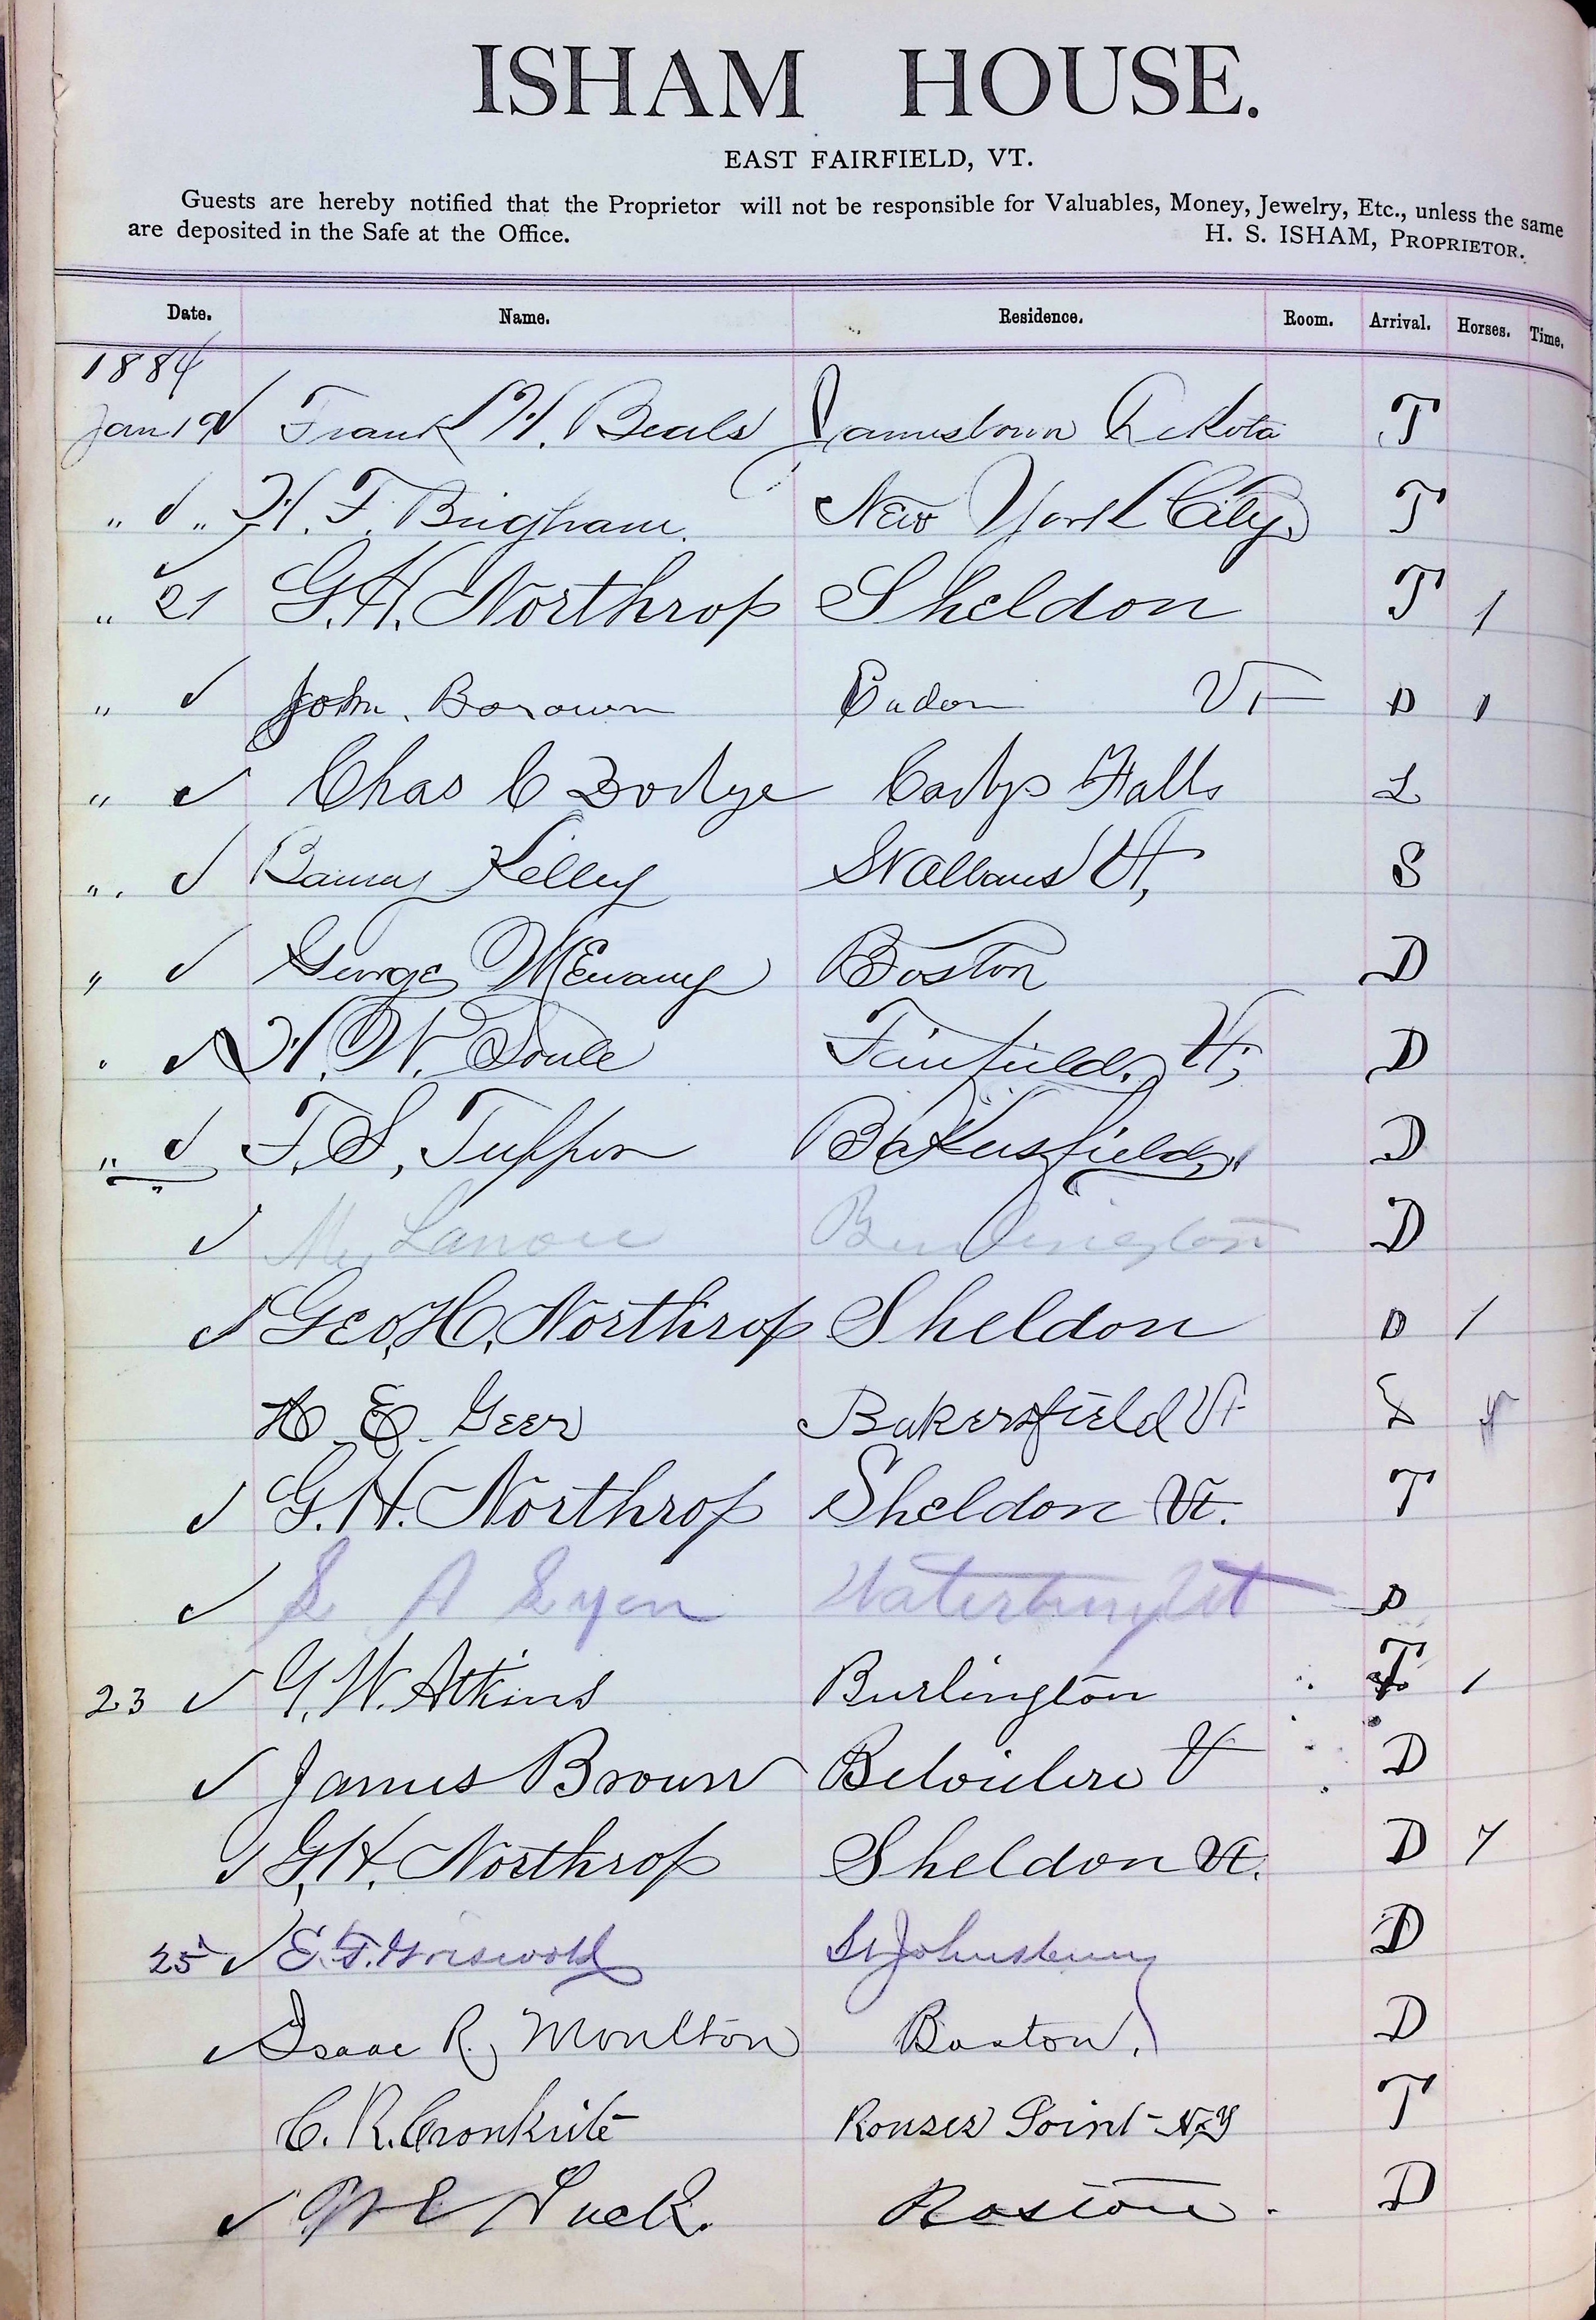 ISHAM HOUSE.
EAST FAIRFIELD, VT.
Guests are hereby notified that the Proprietor will not be responsible for Valuables, Money, Jewelry, Etc., unless the same
are deposited in the Safe at the Office. H. S. ISHAM, PROPRIETOR.
Date. Name. Residence. Room. Arrival. Horses. Time.
1884
Jan 19 ✓ Frank H. Beals Jamestown Dekota T
" ✓ " H. F. Brigham. New York City T
" ✓ 21 G. H. Northrop Sheldon T 1
" ✓ John Borown Eadon Vt D 1
" ✓ Chas C Dodge Cadys Falls L
" ✓ Barney Kelley St Albans Vt, S
" ✓ George McEvaney Boston D
" ✓ H. W. Soule Fairfield, Vt, D
" ✓ F. S. Tupper Bakersfield, " D
✓ Mr Lanou Burlington D
✓ Geo, H, Northrop Sheldon D 1
H E Geer Bakersfield Vt
✓ G. H. Northrop Sheldon Vt. T
✓ S A Lyon Waterbury Vt D
23 ✓ G. W. Atkins Burlington T 1
✓ James Brown Belvidere Vt D
✓ G. H. Northrop Sheldon Vt. D
25 ✓ E. F. Griswold St Johnsbury D
✓ Isaac R. Moulton Boston. D
C. R. Cronkrite Rouses Point N.Y T
✓ W E Huck. Boston. D